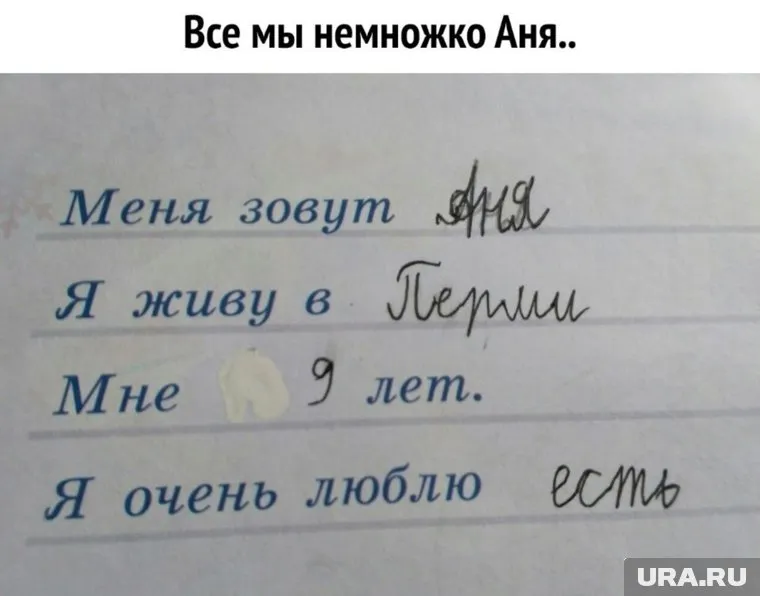 Все мы немножко Аня..
Меня зовут Аня
Я живу в Перми
Мне 9 лет.
Я очень люблю есть
URA.RU